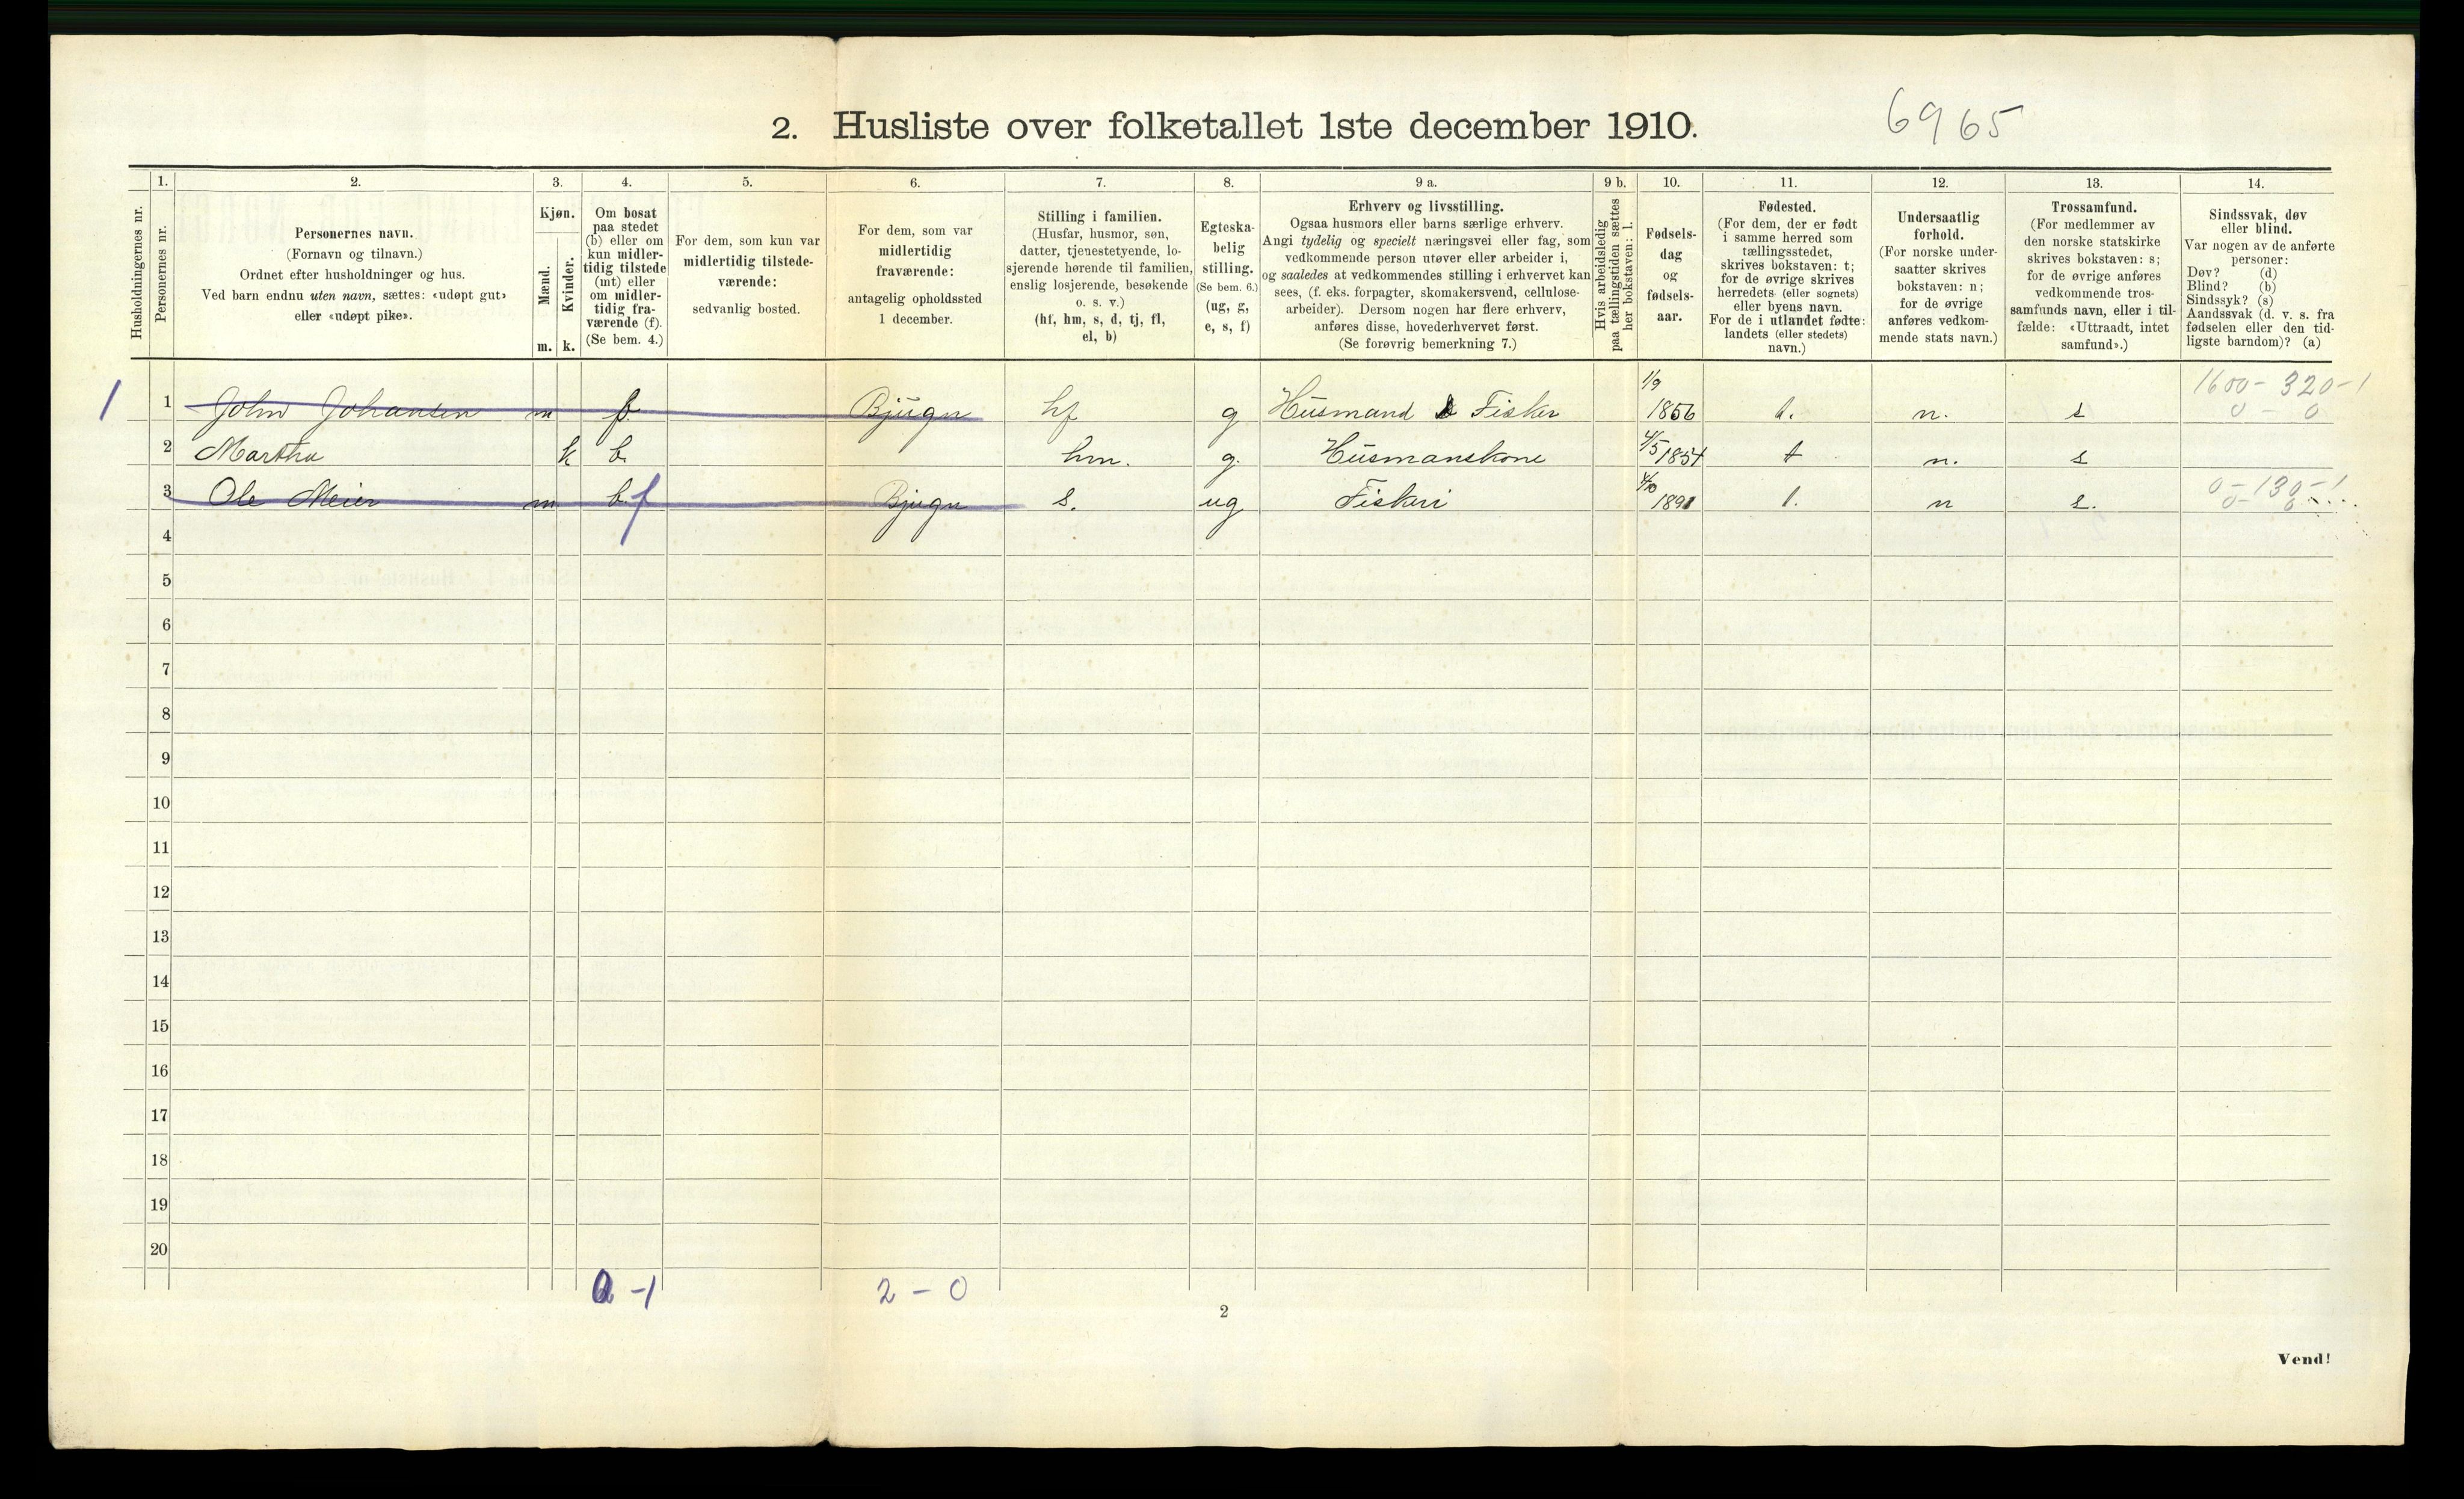 2. Husliste over folketallet 1ste december 1910.
6965
1. 2. 3. 4. 5. 6. 7. 8. 9 a. 9 b. 10. 11. 12. 13. 14.
Husholdningernes nr.
Personernes nr.
Personernes navn.
(Fornavn og tilnavn.)
Ordnet efter husholdninger og hus.
Ved barn endnu uten navn, sættes: «udøpt gut»
eller «udøpt pike».
Kjøn.
Mænd.
Kvinder.
m. k.
Om bosat
paa stedet
(b) eller om
kun midler-
tidig tilstede
(mt) eller
om midler-
tidig fra-
værende (f).
(Se bem. 4.)
For dem, som kun var
midlertidig tilstede-
værende:
sedvanlig bosted.
For dem, som var
midlertidig
fraværende:
antagelig opholdssted
1 december.
Stilling i familien.
(Husfar, husmor, søn,
datter, tjenestetyende, lo-
sjerende hørende til familien,
enslig losjerende, besøkende
o. s. v.)
(hf, hm, s, d, tj, fl,
el, b)
Egteska-
belig
stilling.
(Se bem. 6.)
(ug, g,
e, s, f)
Erhverv og livsstilling.
Ogsaa husmors eller barns særlige erhverv.
Angi tydelig og specielt næringsvei eller fag, som
vedkommende person utøver eller arbeider i,
og saaledes at vedkommendes stilling i erhvervet kan
sees, (f. eks. forpagter, skomakersvend, cellulose-
arbeider). Dersom nogen har flere erhverv,
anføres disse, hovederhvervet først.
(Se forøvrig bemerkning 7.)
Hvis arbeidsledig
paa tællingstiden sættes
her bokstaven: l.
Fødsels-
dag
og
fødsels-
aar.
Fødested.
(For dem, der er født
i samme herred som
tællingsstedet,
skrives bokstaven: t;
for de øvrige skrives
herredets (eller sognets)
eller byens navn.
For de i utlandet fødte:
landets (eller stedets)
navn.)
Undersaatlig
forhold.
(For norske under-
saatter skrives
bokstaven: n;
for de øvrige
anføres vedkom-
mende stats navn.)
Trossamfund.
(For medlemmer av
den norske statskirke
skrives bokstaven: s;
for de øvrige anføres
vedkommende tros-
samfunds navn, eller i til-
fælde: «Uttraadt, intet
samfund».)
Sindssvak, døv
eller blind.
Var nogen av de anførte
personer:
Døv? (d)
Blind? (b)
Sindssyk? (s)
Aandssvak (d. v. s. fra
fødselen eller den tid-
ligste barndom)? (a)
1600 - 320 - 1
0 - 0
1 1 John Johansen m f Bjugn hf g Husmand & Fisker 1/9 1856 t. n. s
2 Martha k b. hm. g. Husmanskone 4/5 1854 t n. s
3 Ole Meier m b. f Bjugn s. ug Fiskeri 4/10 1891 t. n s. 0 - 130 - 1
4
5
6
7
8
9
10
11
12
13
14
15
16
17
18
19
20
0 - 1 2 - 0
2
Vend!